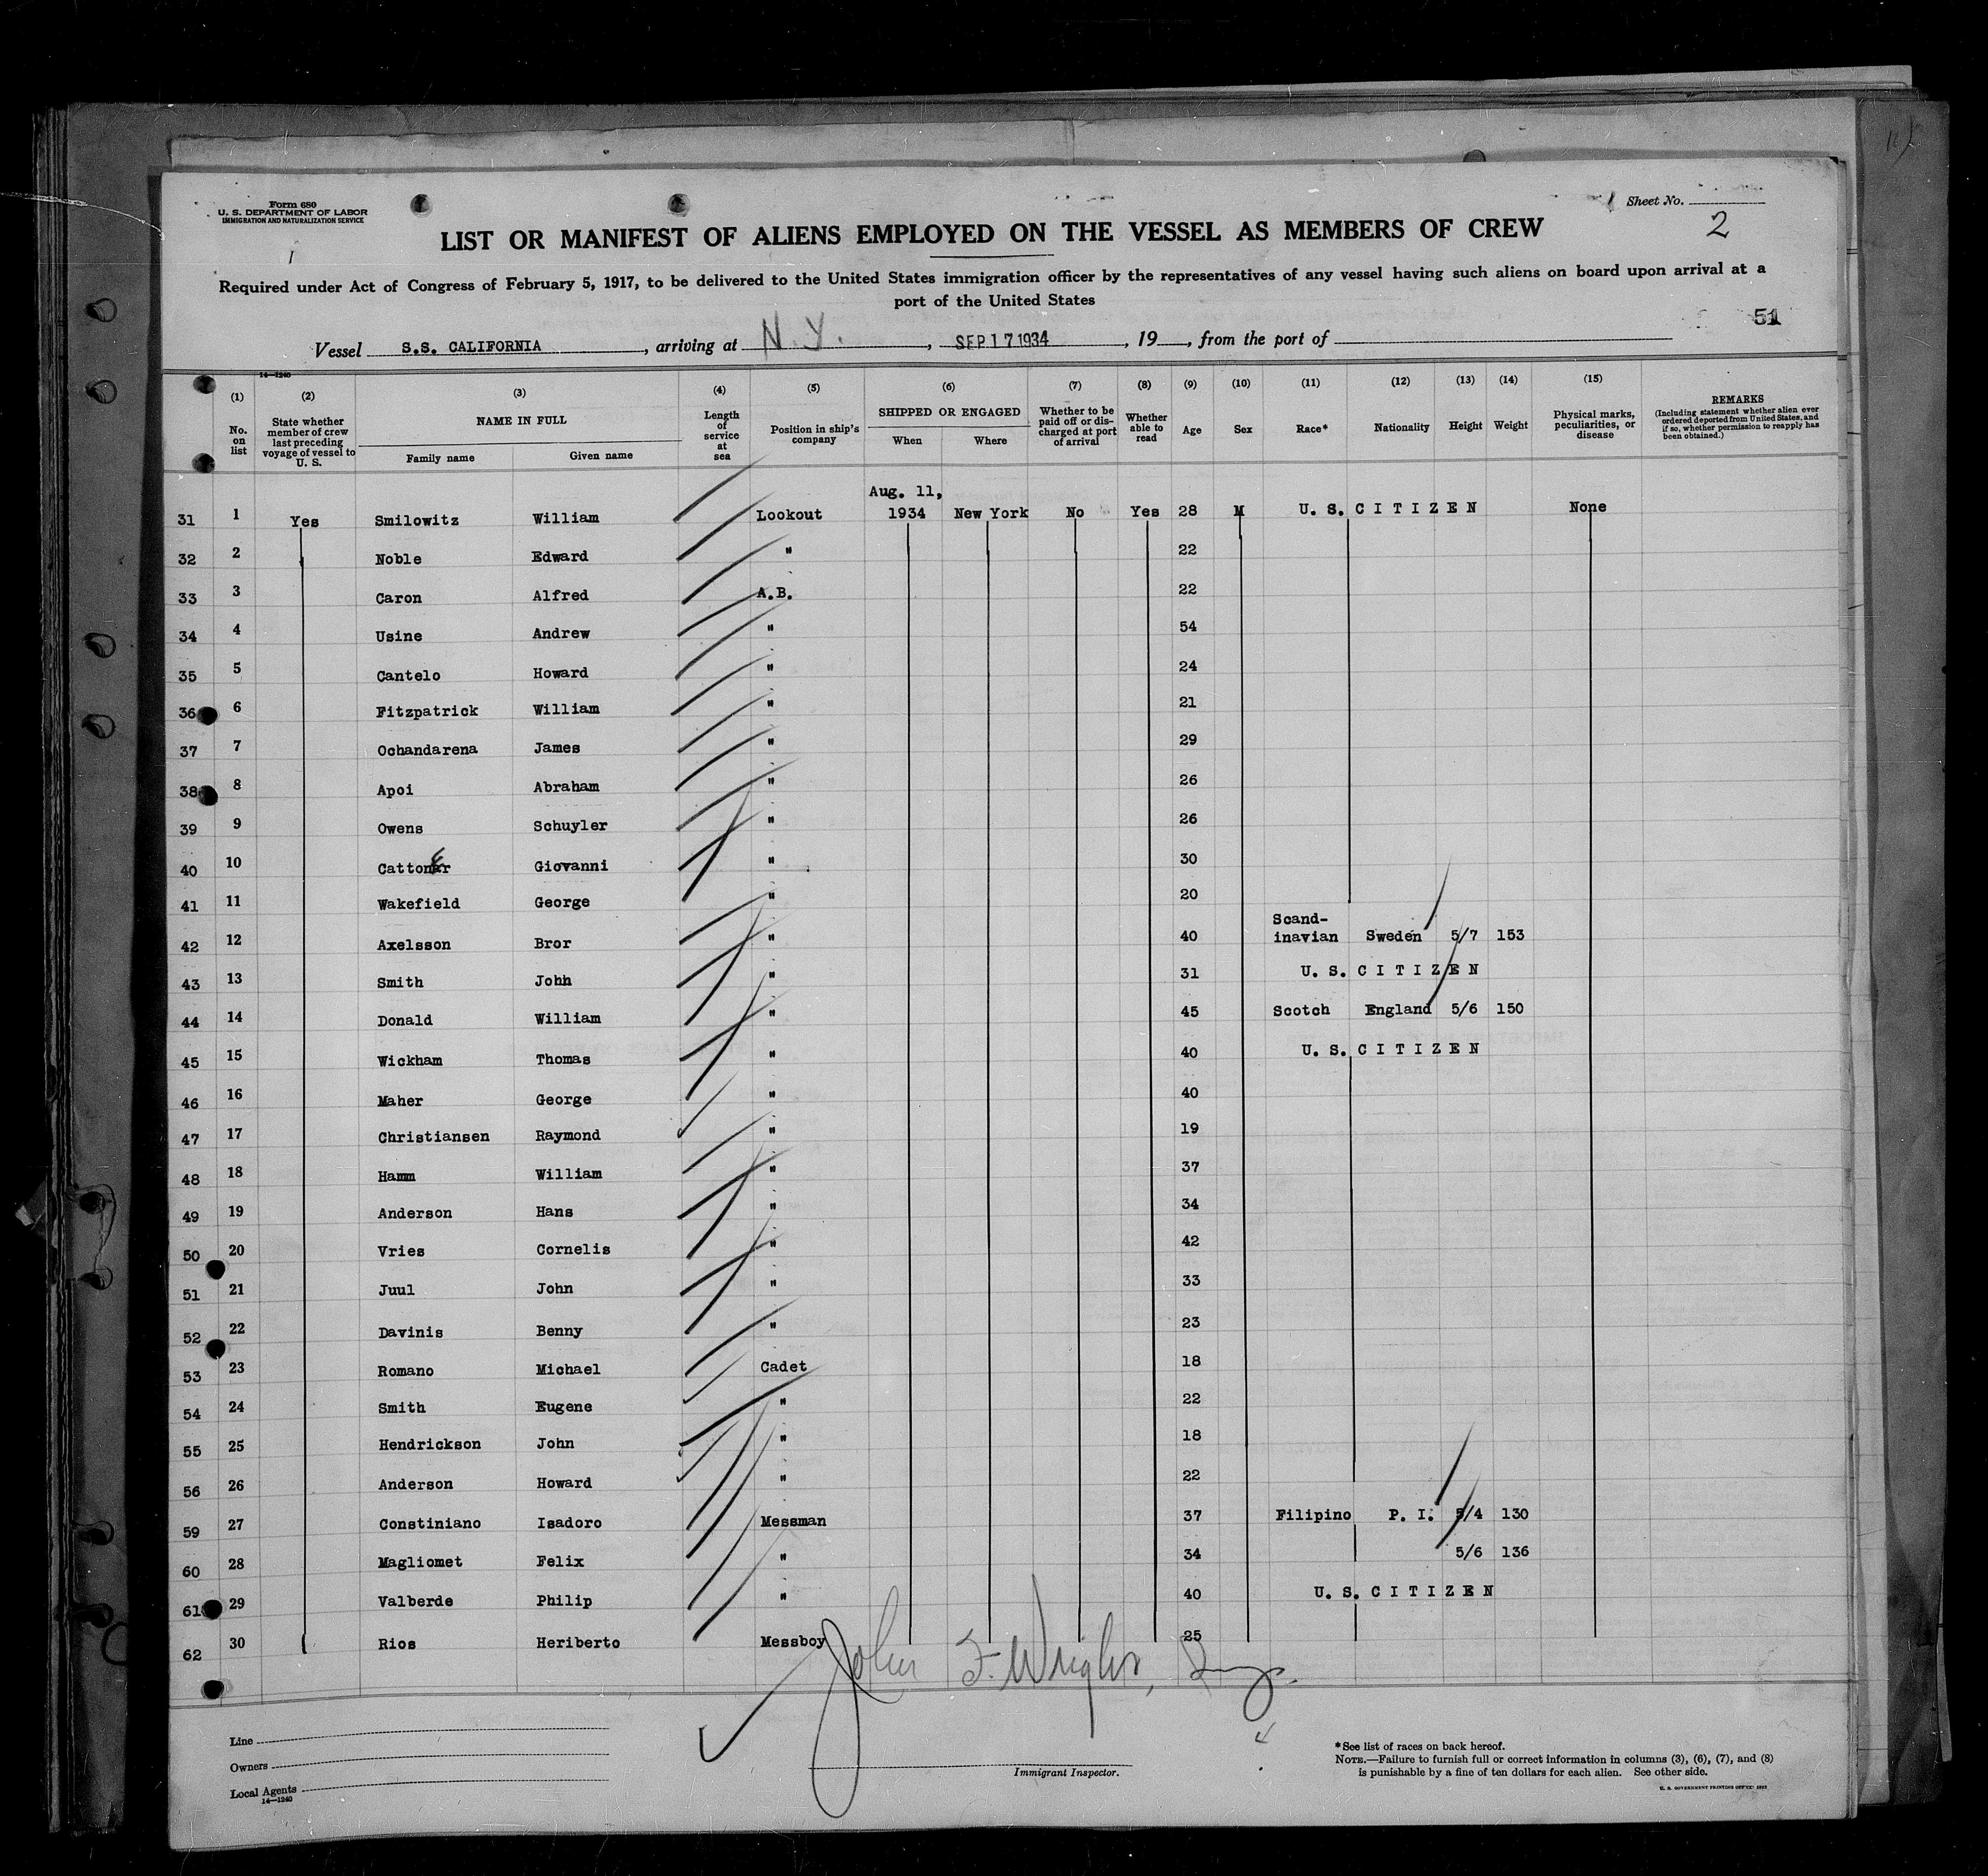 Form 680
U. S. DEPARTMENT OF LABOR
IMMIGRATION AND NATURALIZATION SERVICE
Sheet No.
2
LIST OR MANIFEST OF ALIENS EMPLOYED ON THE VESSEL AS MEMBERS OF CREW
Required under Act of Congress of February 5, 1917, to be delivered to the United States immigration officer by the representatives of any vessel having such aliens on board upon arrival at a
port of the United States
51
Vessel S.S. CALIFORNIA, arriving at N.Y., SEP 17 1934, 19, from the port of
14—1240
(1) No. on list
(2) State whether member of crew last preceding voyage of vessel to U. S.
(3) NAME IN FULL
Family name Given name
(4) Length of service at sea
(5) Position in ship's company
(6) SHIPPED OR ENGAGED
When Where
(7) Whether to be paid off or discharged at port of arrival
(8) Whether able to read
(9) Age
(10) Sex
(11) Race*
(12) Nationality
(13) Height
(14) Weight
(15) Physical marks, peculiarities, or disease
REMARKS
(Including statement whether alien ever ordered deported from United States, and if so, whether permission to reapply has been obtained.)
Aug. 11,
31 1 Yes Smilowitz William Lookout 1934 New York No Yes 28 M U. S. CITIZEN None
32 2 Noble Edward " 22
33 3 Caron Alfred A.B. 22
34 4 Usine Andrew " 54
35 5 Cantelo Howard " 24
36 6 Fitzpatrick William " 21
37 7 Ochandarena James " 29
38 8 Apoi Abraham " 26
39 9 Owens Schuyler " 26
40 10 Cattoner Giovanni " 30
41 11 Wakefield George " 20
42 12 Axelsson Bror " 40 Scandinavian Sweden 5/7 153
43 13 Smith John " 31 U. S. CITIZEN
44 14 Donald William " 45 Scotch England 5/6 150
45 15 Wickham Thomas " 40 U. S. CITIZEN
46 16 Maher George " 40
47 17 Christiansen Raymond " 19
48 18 Hamm William " 37
49 19 Anderson Hans " 34
50 20 Vries Cornelis " 42
51 21 Juul John " 33
52 22 Davinis Benny " 23
53 23 Romano Michael Cadet 18
54 24 Smith Eugene " 22
55 25 Hendrickson John " 18
56 26 Anderson Howard " 22
59 27 Constiniano Isadoro Messman 37 Filipino P. I. 5/4 130
60 28 Magliomet Felix " 34 5/6 136
61 29 Valberde Philip " 40 U. S. CITIZEN
62 30 Rios Heriberto Messboy 25
John F. Wright,
Line
Owners
Local Agents
14—1240
Immigrant Inspector.
*See list of races on back hereof.
NOTE.—Failure to furnish full or correct information in columns (3), (6), (7), and (8)
is punishable by a fine of ten dollars for each alien. See other side.
U. S. GOVERNMENT PRINTING OFFICE